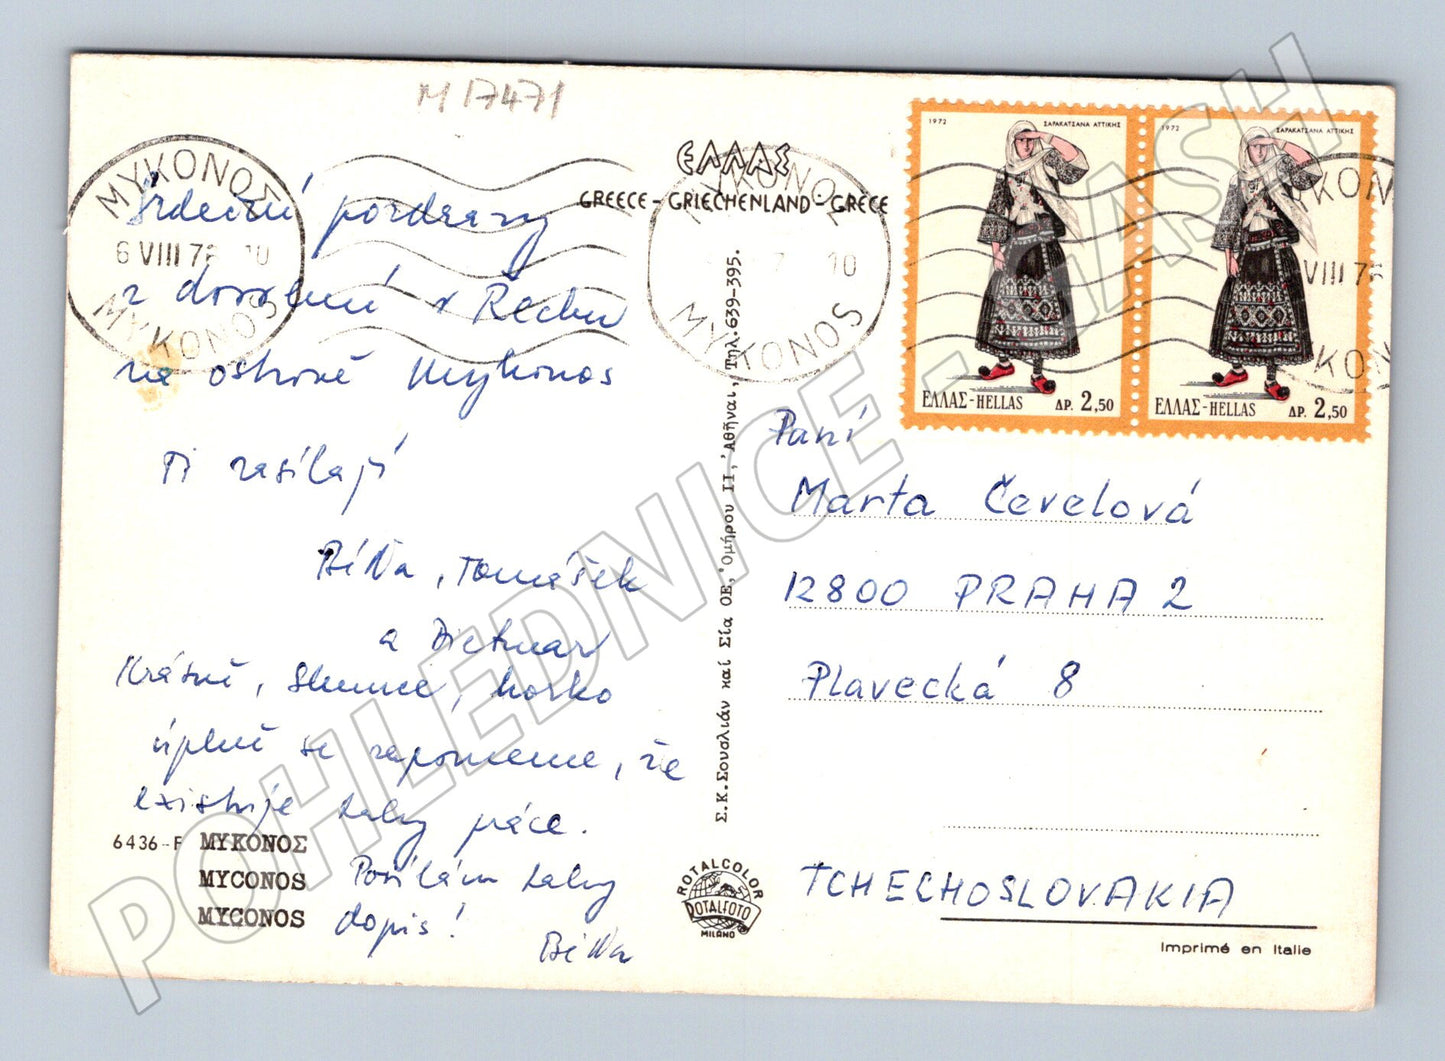 M 17471
ΜΥΚΟΝΟΣ
6 VIII 7 10
MYKONOS
ΕΛΛΑΣ
GREECE - GRIECHENLAND - GRECE
ΜΥΚΟΝΟΣ
7 10
MYKONOS
1972 ΣΑΡΑΚΑΤΣΑΝΑ ΑΤΤΙΚΗΣ
ΕΛΛΑΣ-HELLAS ΔΡ. 2,50
1972 ΣΑΡΑΚΑΤΣΑΝΑ ΑΤΤΙΚΗΣ
ΕΛΛΑΣ-HELLAS ΔΡ. 2,50
ΥΚΟΝ
VIII 7
ΚΟΝ
Srdečné pozdravy
z dovolené v Řecku
na ostrově Mykonos
Ti zasílají
Tomášek
a Dietmar
Krásně, slunce, horko
úplně se zapomene, že
existuje taky práce.
Posílám taky
dopis!
6436-F ΜΥΚΟΝΟΣ
MYCONOS
MYCONOS
Σ.Κ.Σουαλιάν καί Σία ΟΕ, Ὁμήρου ΙΙ, Ἀθῆναι, Τηλ.639-395.
Paní
Marta Čevelová
12800 PRAHA 2
Plavecká 8
TCHECHOSLOVAKIA
ROTALCOLOR
ROTALFOTO
MILANO
Imprimé en Italie
POHLEDNICE - HASH